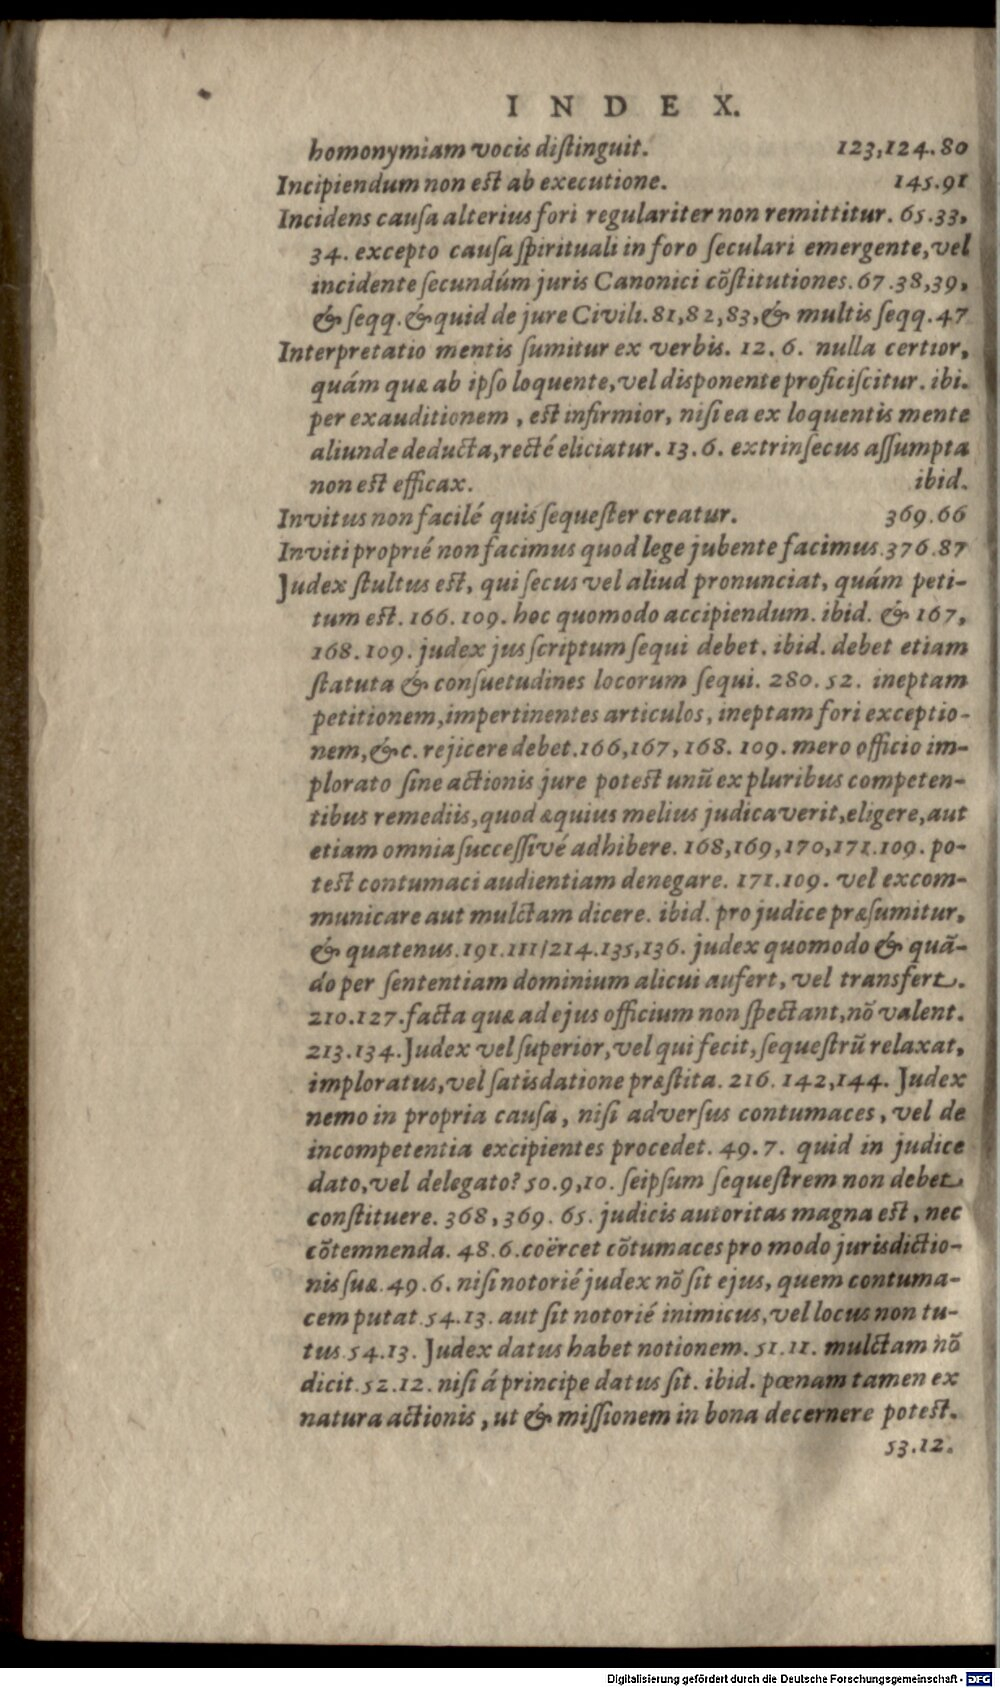 INDEX.
homonymiam vocis diſtinguit. 123,124.80
Incipiendum non eſt ab executione. 145.91
Incidens cauſa alterius fori regulariter non remittitur. 65.33,
34. excepto cauſa ſpirituali in foro ſeculari emergente, vel
incidente ſecundúm juris Canonici cõſtitutiones. 67.38,39,
& ſeqq. & quid de jure Civili. 81,82,83, & multis ſeqq. 47
Interpretatio mentis ſumitur ex verbis. 12. 6. nulla certior,
quám quæ ab ipſo loquente, vel disponente proficiſcitur. ibi.
per exauditionem, eſt infirmior, niſi ea ex loquentis mente
aliunde deducta, recté eliciatur. 13.6. extrinſecus aſſumpta
non eſt efficax. ibid.
Invitus non facilé quis ſequeſter creatur. 369.66
Inviti proprié non facimus quod lege jubente facimus. 376.87
Judex ſtultus eſt, qui ſecus vel aliud pronunciat, quám peti-
tum eſt. 166.109. hoc quomodo accipiendum. ibid. & 167,
168.109. judex jus ſcriptum ſequi debet. ibid. debet etiam
ſtatuta & conſuetudines locorum ſequi. 280.52. ineptam
petitionem, impertinentes articulos, ineptam fori exceptio-
nem, &c. rejicere debet. 166,167,168. 109. mero officio im-
plorato ſine actionis jure poteſt unũ ex pluribus competen-
tibus remediis, quod æquius melius judicaverit, eligere, aut
etiam omnia ſucceſſivé adhibere. 168,169,170,171.109. po-
teſt contumaci audientiam denegare. 171.109. vel excom-
municare aut mulctam dicere. ibid. pro judice præſumitur,
& quatenus. 191.111/214.135,136. judex quomodo & quã-
do per ſententiam dominium alicui aufert, vel transfert.
210.127. facta quæ ad ejus officium non ſpectant, nõ valent.
213.134. Judex vel ſuperior, vel qui fecit, ſequeſtrũ relaxat,
imploratus, vel ſatisdatione præſtita. 216. 142,144. Judex
nemo in propria cauſa, niſi adverſus contumaces, vel de
incompetentia excipientes procedet. 49.7. quid in judice
dato, vel delegato? 50.9,10. ſeipſum ſequeſtrem non debet
conſtituere. 368,369. 65. judicis autoritas magna eſt, nec
cõtemnenda. 48.6. coërcet cõtumaces pro modo jurisdictio-
nis ſuæ. 49.6. niſi notorié judex nõ ſit ejus, quem contuma-
cem putat. 54.13. aut ſit notorié inimicus, vel locus non tu-
tus. 54.13. Judex datus habet notionem. 51.11. mulctam nõ
dicit. 52.12. niſi á principe datus ſit. ibid. pœnam tamen ex
natura actionis, ut & miſſionem in bona decernere poteſt.
53.12.
Digitalisierung gefördert durch die Deutsche Forschungsgemeinschaft - DFG